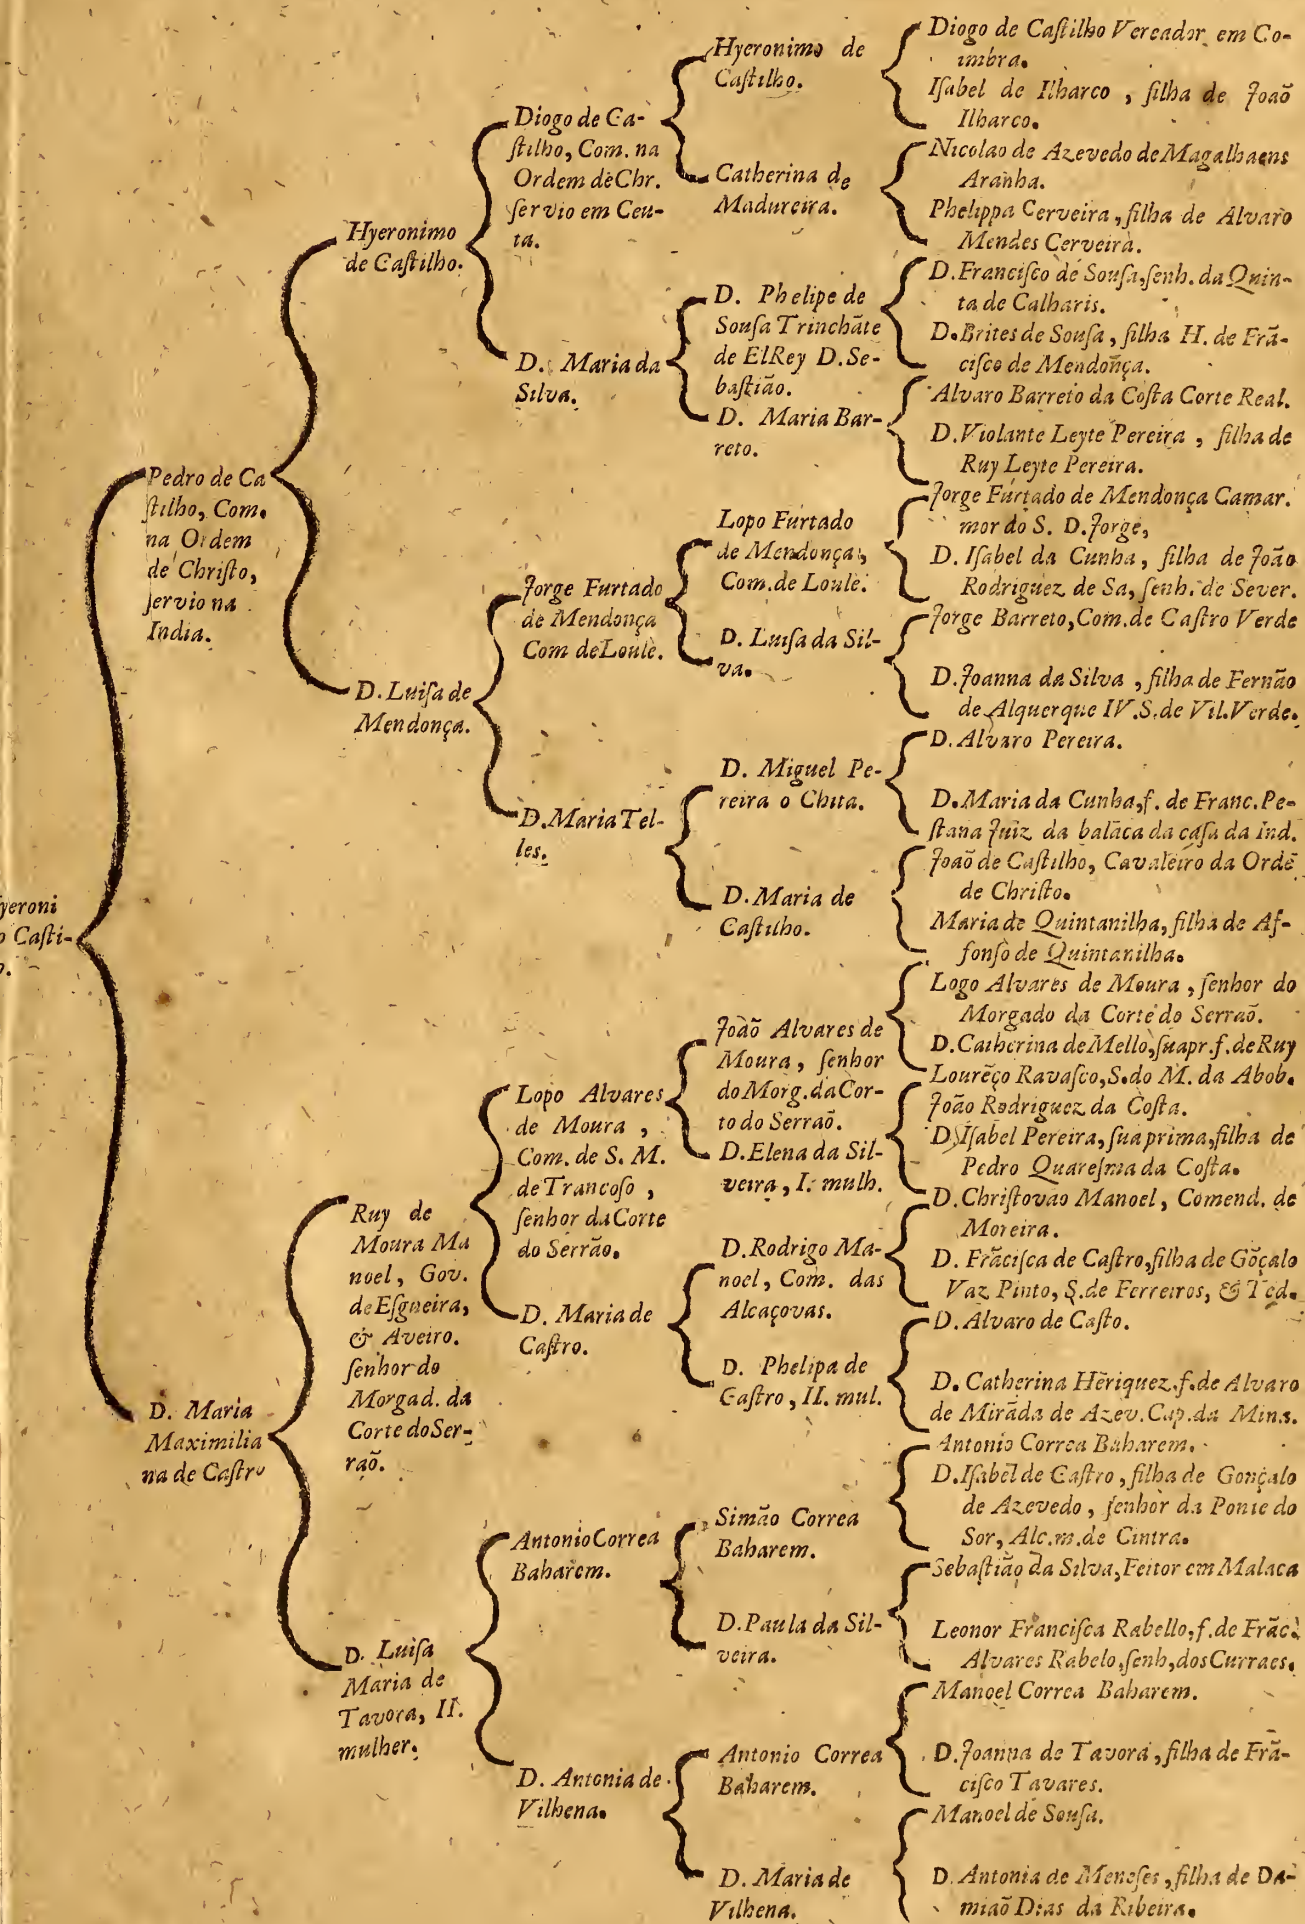 yeroni
o Casti-
o.
Pedro de Ca
stilho, Com.
na Ordem
de Christo,
servio na
India.
D. Maria
Maximilia
na de Castro
Hyeronimo
de Castilho.
D. Luisa de
Mendonça.
Ruy de
Moura Ma
noel, Gov.
de Esgueira,
& Aveiro.
senhor do
Morgad. da
Corte do Ser-
raõ.
D. Luisa
Maria de
Tavora, II.
mulher.
Diogo de Ca-
stilho, Com. na
Ordem de Chr.
servio em Ceu-
ta.
D. Maria da
Silva.
Jorge Furtado
de Mendonça
Com de Loulè.
D. Maria Tel-
les.
Lopo Alvares
de Moura ,
Com. de S. M.
de Trancoso ,
senhor da Corte
do Serrão.
D. Maria de
Castro.
Antonio Correa
Baharem.
D. Antonia de
Vilhena.
Hyeronimo de
Castilho.
Catherina de
Madureira.
D. Phelipe de
Sousa Trinchãte
de ElRey D. Se-
bastião.
D. Maria Bar-
reto.
Lopo Furtado
de Mendonça,
Com. de Loulè.
D. Luisa da Sil-
va.
D. Miguel Pe-
reira o Chita.
D. Maria de
Castilho.
Joaõ Alvares de
Moura , senhor
do Morg. da Cor-
to do Serraõ.
D. Elena da Sil-
veira , I. mulh.
D. Rodrigo Ma-
noel, Com. das
Alcaçovas.
D. Phelipa de
Castro , II. mul.
Simão Correa
Baharem.
D. Paula da Sil-
veira.
Antonio Correa
Baharem.
D. Maria de
Vilhena.
Diogo de Castilho Vereador em Co-
imbra.
Isabel de Ilharco , filha de Joaõ
Ilharco.
Nicolao de Azevedo de Magalhaens
Aranha.
Phelippa Cerveira , filha de Alvaro
Mendes Cerveira.
D. Francisco de Sousa, senh. da Quin-
ta de Calharis.
D. Brites de Sousa , filha H. de Frã-
cisco de Mendonça.
Alvaro Barreto da Costa Corte Real.
D. Violante Leyte Pereira , filha de
Ruy Leyte Pereira.
Jorge Furtado de Mendonça Camar.
mor do S. D. Jorge,
D. Isabel da Cunha, filha de João
Rodriguez de Sa, senh. de Sever.
Jorge Barreto, Com. de Castro Verde
D. Joanna da Silva , filha de Fernão
de Alquerque IV. S. de Vil. Verde.
D. Alvaro Pereira.
D. Maria da Cunha, f. de Franc. Pe-
stana Juiz da balãca da casa da Ind.
Joaõ de Castilho, Cavaleiro da Ordẽ
de Christo.
Maria de Quintanilha, filha de Af-
fonso de Quintanilha.
Logo Alvares de Moura , senhor do
Morgado da Corte do Serraõ.
D. Catherina de Mello, sua pr. f. de Ruy
Lourẽço Ravasco, S. do M. da Abob.
João Rodriguez da Costa.
D. Isabel Pereira, sua prima, filha de
Pedro Quaresma da Costa.
D. Christovão Manoel, Comend. de
Moreira.
D. Frãcisca de Castro, filha de Gõçalo
Vaz Pinto, S. de Ferreiros, & Ted.
D. Alvaro de Casto.
D. Catherina Hẽriquez. f. de Alvaro
de Mirãda de Azev. Cap. da Mina.
Antonio Correa Baharem.
D. Isabel de Castro , filha de Gonçalo
de Azevedo , senhor da Ponte do
Sor, Alc. m. de Cintra.
Sebastião da Silva, Feitor em Malaca
Leonor Francisca Rabello, f. de Frãc.
Alvares Rabelo, senh, dos Curraes.
Manoel Correa Baharem.
D. Joanna de Tavora , filha de Frã-
cisco Tavares.
Manoel de Sousa.
D. Antonia de Meneses , filha de Da-
miaõ Dias da Ribeira.